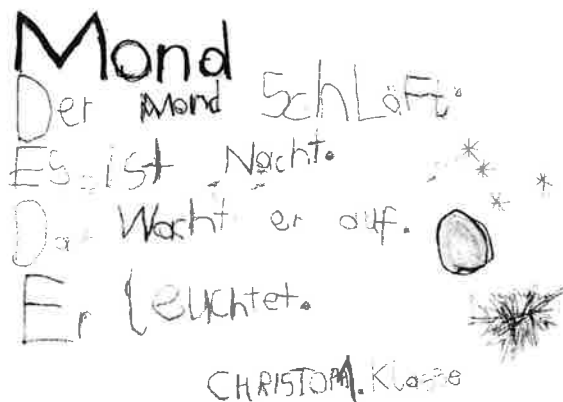 Mond
Der Mond SchLäFt.
Es ist Nacht.
Da Wacht er auf.
Er leuchtet.
CHRISTOPH 1. Klasse